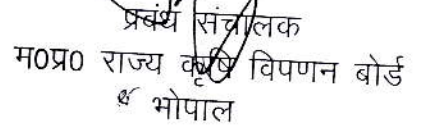 प्रबंध संचालक
म0प्र0 राज्य कृषि विपणन बोर्ड
भोपाल